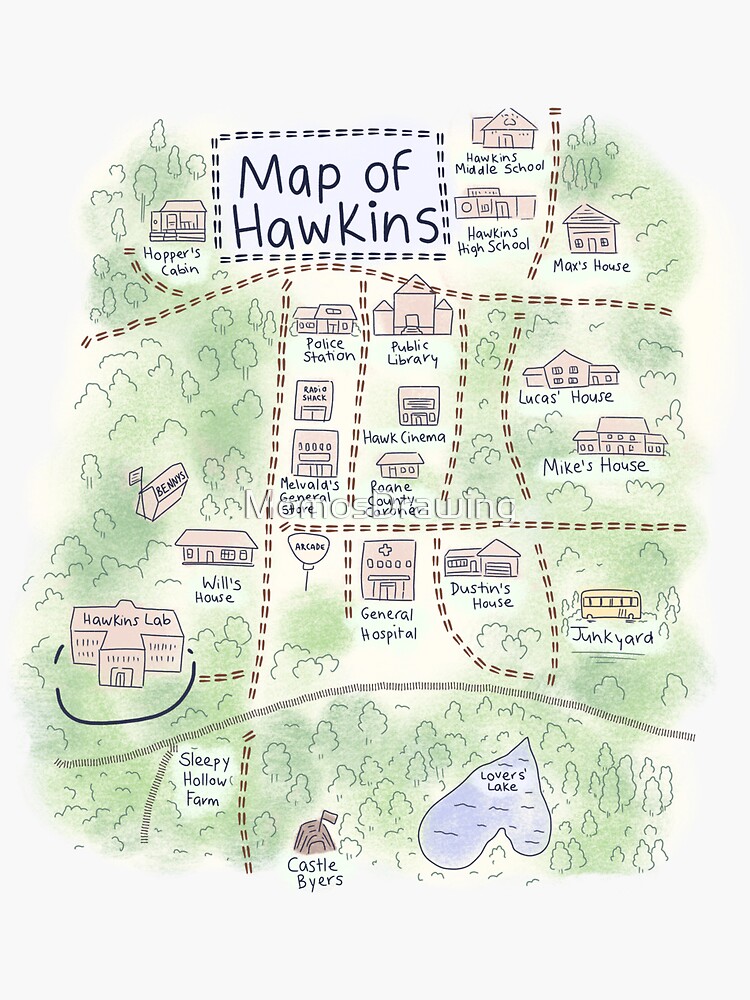 Map of
Hawkins
Hawkins
Middle School
Hawkins
High School
Max's House
Hopper's
Cabin
Police
Station
Public
Library
RADIO
SHACK
Hawk Cinema
Lucas' House
Mike's House
Melvald's
General
Store
Roane
County
BENNYS
MemosDrawing
Will's
House
ARCADE
General
Hospital
Dustin's
House
Junkyard
Hawkins Lab
Sleepy
Hollow
Farm
Lovers'
Lake
Castle
Byers